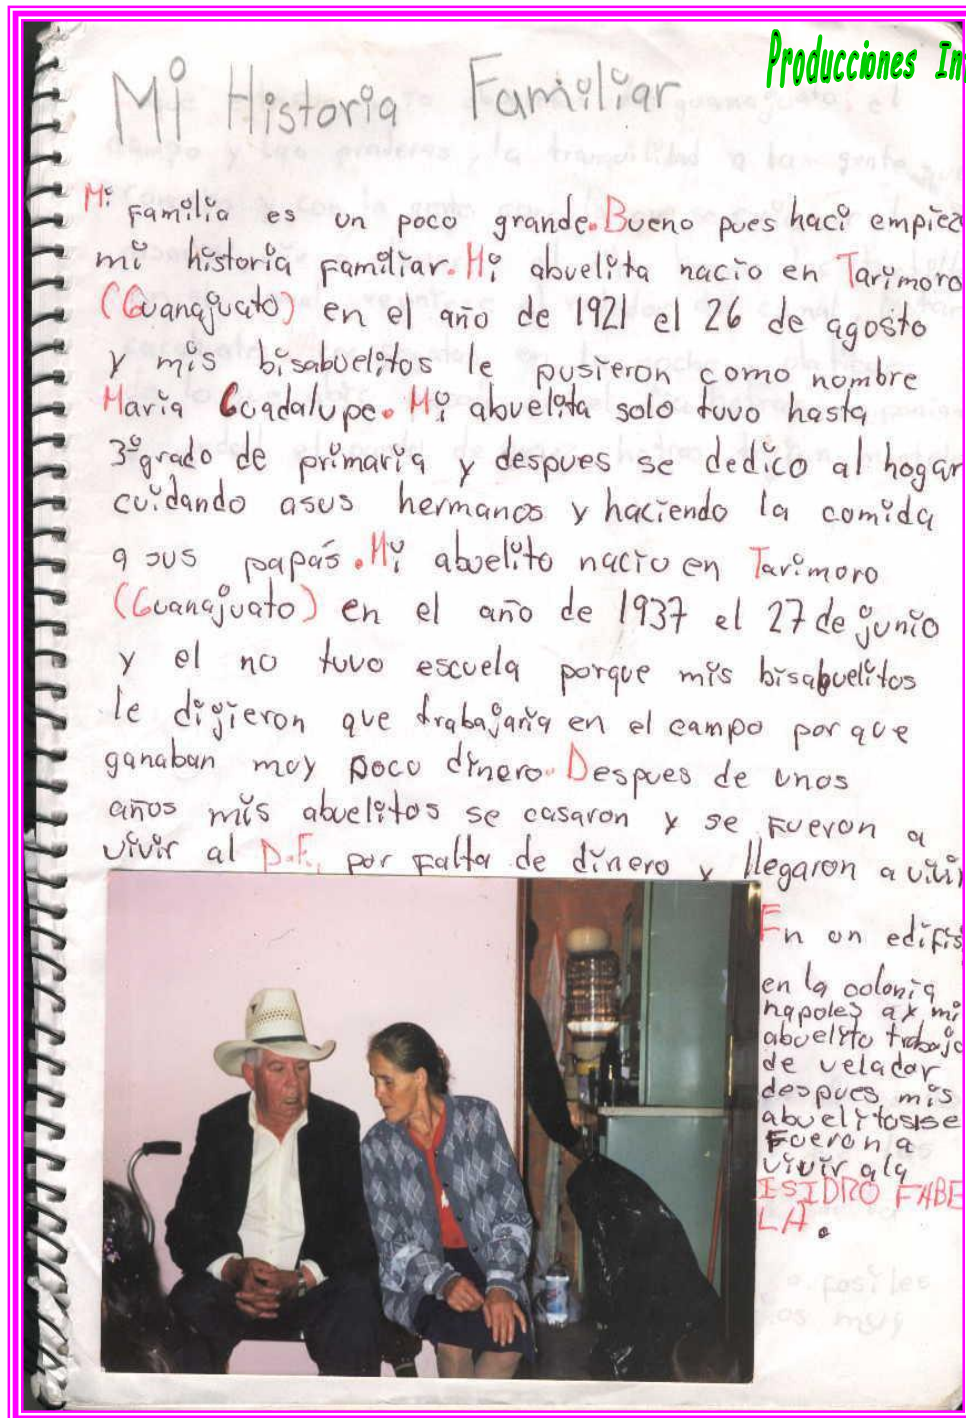 Producciones In
Mi Historia Familiar
Mi familia es un poco grande. Bueno pues haci empiez
mi historia familiar. Mi abuelita nacio en Tarimoro
(Guanajuato) en el año de 1921 el 26 de agosto
y mis bisabuelitos le pusieron como nombre
Maria Guadalupe. Mi abuelita solo tuvo hasta
3º grado de primaria y despues se dedico al hogar
cuidando asus hermanos y haciendo la comida
a sus papás. Mi abuelito nacio en Tarimoro
(Guanajuato) en el año de 1937 el 27 de junio
y el no tuvo escuela porque mis bisabuelitos
le dijieron que trabajaria en el campo por que
ganaban muy poco dinero. Despues de unos
años mis abuelitos se casaron y se fueron a
vivir al D.F. por falta de dinero y llegaron a vivi
En un edifis
en la colonia
napoles ay mi
abuelito trabajo
de velador
despues mis
abuelitos se
fueron a
vivir ala
ISIDRO FABE
LA.